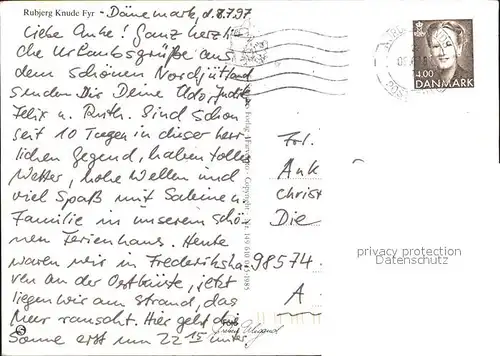 Rubjerg Knude Fyr - Dänemark, d. 8.7.97
Liebe Anke! Ganz herzli-
che Urlaubsgrüße aus
dem schönen Nordjütland
senden Dir Deine Udo, Judith
Felix u. Ruth. Sind schon
seit 10 Tagen in dieser herr
lichen Gegend, haben tolles
Wetter, hohe Wellen und
viel Spaß mit Sabine u.
Familie in unserem schö-
nen Ferienhaus. Heute
waren wir in Frederiksha
ven an der Ostküste, jetzt
liegen wir am Strand, das
Meer rauscht. Hier geht die
Sonne erst um 22 15 unter.
4.00
DANMARK
Frl.
Ank
Christ
Die
98574
A
privacy protection
Datenschutz